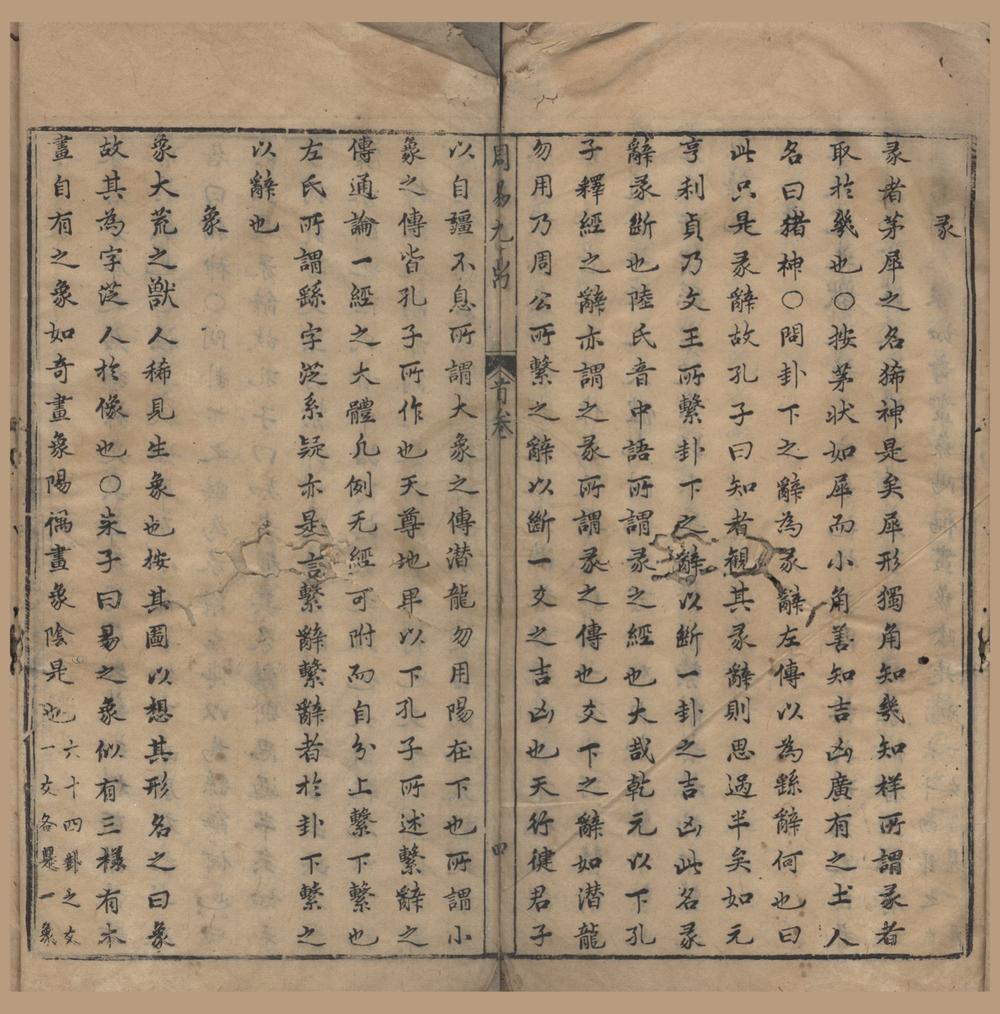 彖
彖者茅犀之名狶神是矣犀形獨角知幾知祥所謂彖者
取於幾也○按茅状如犀而小角善知吉凶廣有之土人
名曰猪神○問卦下之辭為彖辭左傳以為繇辭何也曰
此只是彖辭故孔子曰知者観其彖辭則思過半矣如元
亨利貞乃文王所繫卦下之辭以斷一卦之吉凶此名彖
辭彖斷也陸氏音中語所謂彖之經也大哉乾元以下孔
子釋經之辭亦謂之彖所謂彖之傳也爻下之辭如潜龍
勿用乃周公所繫之辭以斷一爻之吉凶也天行健君子
周易九 首卷 四
以自疆不息所謂大象之傳潜龍勿用陽在下也所謂小
象之傳皆孔子所作也天尊地畀以下孔子所述繫辭之
傳通論一經之大體凡例无經可附而自分上繫下繫也
左氏所謂繇字泛系疑亦是言繫辭繫辭者於卦下繫之
以辭也
象
象大荒之獸人稀見生象也按其圖以想其形名之曰象
故其為字泛人於像也○朱子曰易之象似有三樣有本
畫自有之象如奇畫象陽耦畫象陰是也六十四卦之爻
一爻各是一象